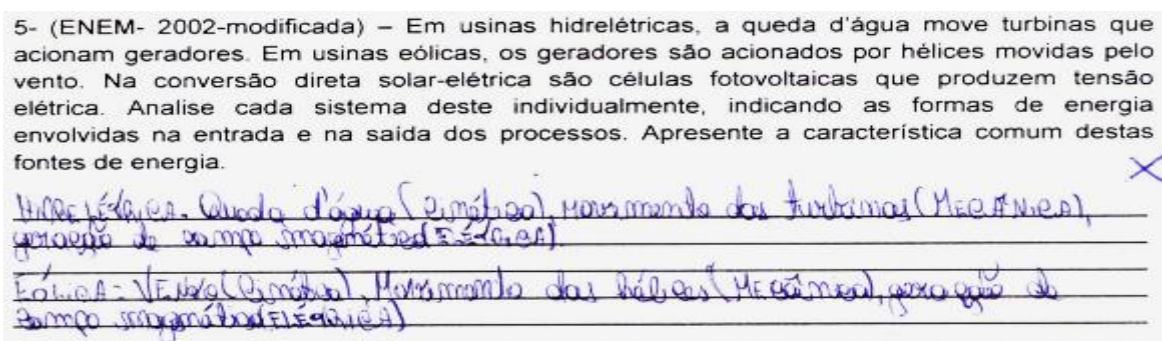 5- (ENEM- 2002-modificada) – Em usinas hidrelétricas, a queda d'água move turbinas que
acionam geradores. Em usinas eólicas, os geradores são acionados por hélices movidas pelo
vento. Na conversão direta solar-elétrica são células fotovoltaicas que produzem tensão
elétrica. Analise cada sistema deste individualmente, indicando as formas de energia
envolvidas na entrada e na saída dos processos. Apresente a característica comum destas
fontes de energia.
HIDRELÉTRICA. Queda d'água (Cinética), Movimento das turbinas (MECÂNICA),
geração de campo magnético (ELÉTRICA).
EÓLICA = VENTO (Cinética), Movimento das hélices (MECÂNICA), geração de
campo magnético (ELÉTRICA)